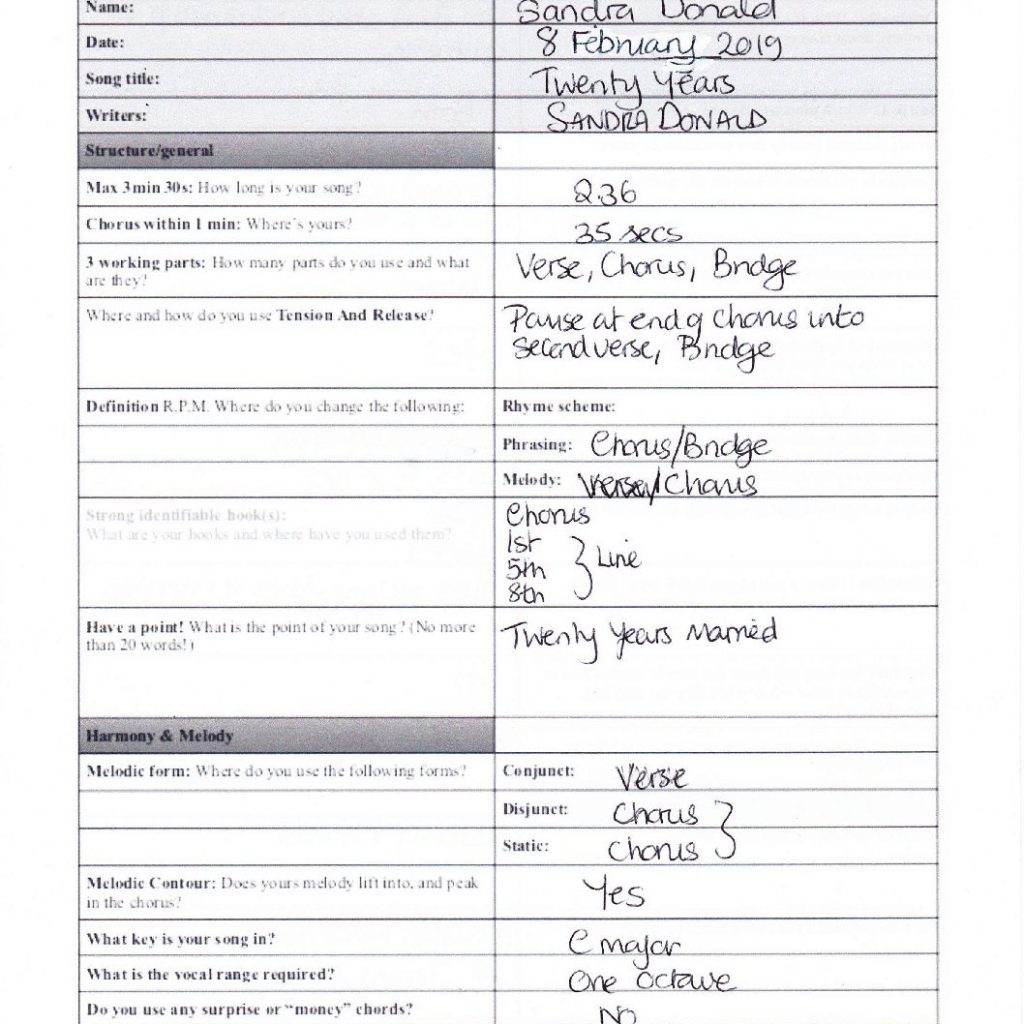 Name: Sandra Donald
Date: 8 February 2019
Song title: Twenty Years
Writers: SANDRA DONALD
Structure/general
Max 3min 30s: How long is your song? 2.36
Chorus within 1 min: Where's yours? 35 secs
3 working parts: How many parts do you use and what are they? Verse, Chorus, Bridge
Where and how do you use Tension And Release? Pause at end of Chorus into
second verse, Bridge
Definition R.P.M. Where do you change the following: Rhyme scheme:
Phrasing: Chorus/Bridge
Melody: Verse/Chorus
Strong identifiable hook(s):
What are your hooks and where have you used them?
Chorus
1st
5th } Line
8th
Have a point! What is the point of your song? (No more
than 20 words!)
Twenty Years Married
Harmony & Melody
Melodic form: Where do you use the following forms? Conjunct: Verse
Disjunct: Chorus
Static: Chorus
Melodic Contour: Does yours melody lift into, and peak
in the chorus?
Yes
What key is your song in? C major
What is the vocal range required? One Octave
Do you use any surprise or "money" chords? No